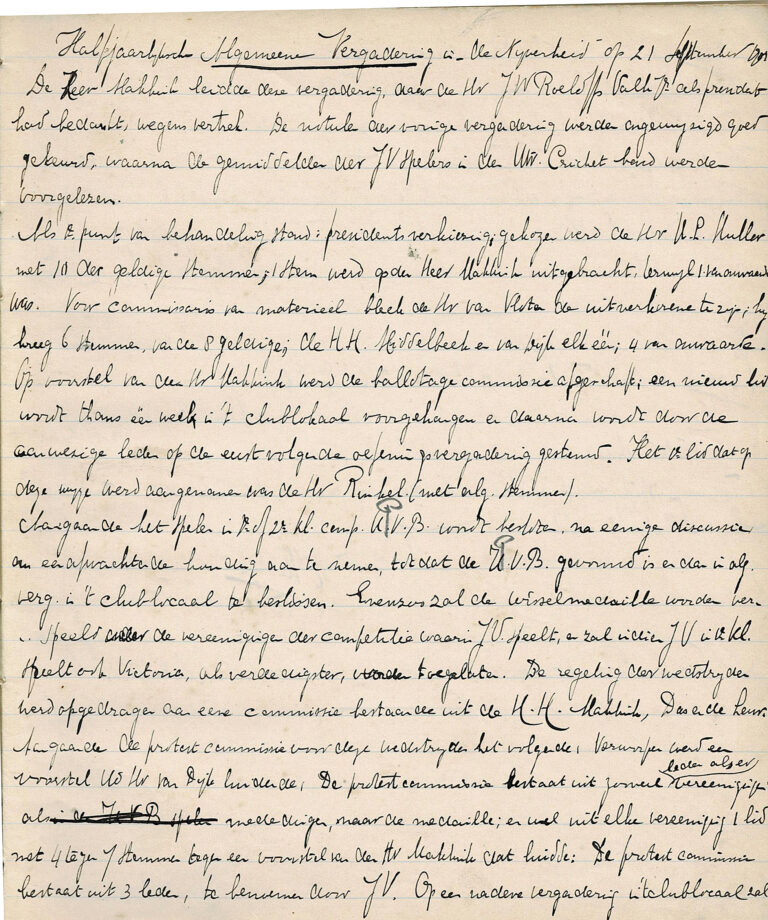 Halfjaarlijksche Algemeene Vergadering in de Nijverheid op 21 September
De Heer Makkink leidde deze vergadering, daar de Hr J W Roeloffs Valk Jr als president
had bedankt, wegens vertrek. De notulen der vorige vergadering werden ongewijzigd goed
gekeurd, waarna de gemiddelden der JV spelers in den Utr. Cricket bond werden
voorgelezen.
Als 1e punt van behandeling stond: presidentsverkiezing; gekozen werd de Hr H.P. Muller
met 10 der geldige stemmen; 1 stem werd op den Heer Makkink uitgebracht, terwijl 1 van onwaarde
was. Voor commissaris van materieel bleek de Hr van Vloten de uitverkorene te zijn; hij
kreeg 6 stemmen, van de 8 geldige; de H.H. Middelbeek en van Dijk elk één; 4 van onwaarde.
Op voorstel van den Hr Makkink werd de ballotage commissie afgeschaft; een nieuw lid
wordt thans één week in 't clublokaal voorgehangen en daarna wordt door de
aanwezige leden op de eerst volgende oefeningsvergadering gestemd. Het 1e lid dat op
deze wijze werd aangenomen was de Hr Rinkel. (met alg. stemmen).
Aangaande het spelen in 1e of 2e kl. comp. G.V.B. wordt besloten, na eenige discussie
om een afwachtende houding aan te nemen, totdat de G.V.B. gevormd is en dan in alg.
verg. in 't clublocaal te beslissen. Evenzoo zal de wisselmedaille worden ver-
speeld onder de vereenigingen der competitie waarin JV. speelt, en zal indien JV in 1e kl.
speelt ook Victoria, als verdedigster, worden toegelaten. De regeling der wedstrijden
werd opgedragen aan eene commissie bestaande uit de H.H. Makkink, Das en de
Aangaande de protest commissie voor deze wedstrijden het volgende; Verworpen werd een
voorstel v/d Hr van Dijk luidende; De protestcommissie bestaat uit zooveel leden als er vereenigingen
als in de U.V.B spelen mededingen, naar de medaille; en wel uit elke vereeniging 1 lid
met 4 tegen 7 stemmen tegen een voorstel van den Hr Makkink dat luidde: De protest commissie
bestaat uit 3 leden, te benoemen door JV. Op een nadere vergadering in 't clublocaal zal